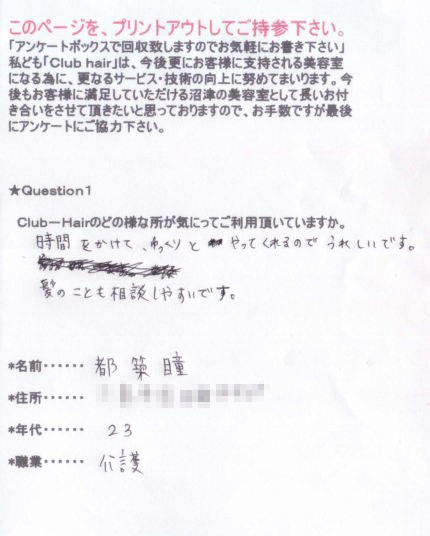 このページを、プリントアウトしてご持参下さい。
「アンケートボックスで回収致しますのでお気軽にお書き下さい」
私ども「Club hair」は、今後更にお客様に支持される美容室
になる為に、更なるサービス・技術の向上に努めてまいります。今
後もお客様に満足していただける沼津の美容室として長いお付
き合いをさせて頂きたいと思っておりますので、お手数ですが最後
にアンケートにご協力下さい。
★Question1
Club－Hairのどの様な所が気にってご利用頂いていますか。
時間をかけて、ゆっくりと やってくれるので うれしいです。
髪のことも相談しやすいです。
*名前・・・・・・ 都築瞳
*住所・・・・・・
*年代・・・・・・ 23
*職業・・・・・・ 介護